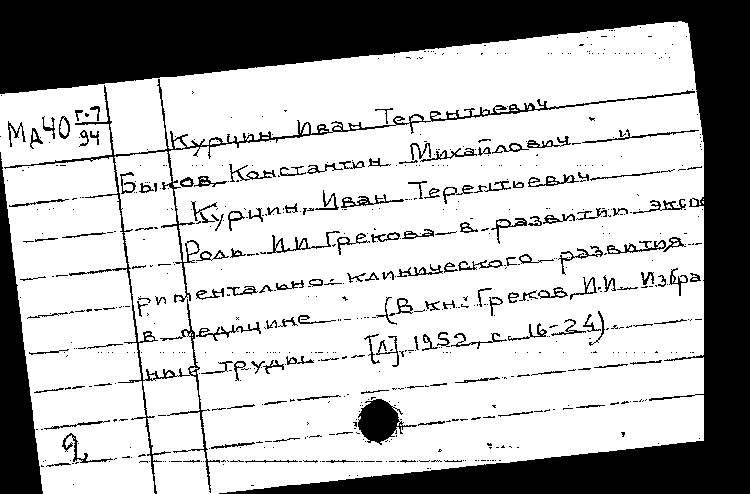 Мд40 г.7/94
Курцин, Иван Терентьевич
Быков, Константин Михайлович и
Курцин, Иван Терентьевич
Роль И.И Грекова в развитии экспе
риментально-клинического развития
в медицине (В кн.: Греков, И.И. Избра
ные труды. [Л], 1952, с. 16-24).
2